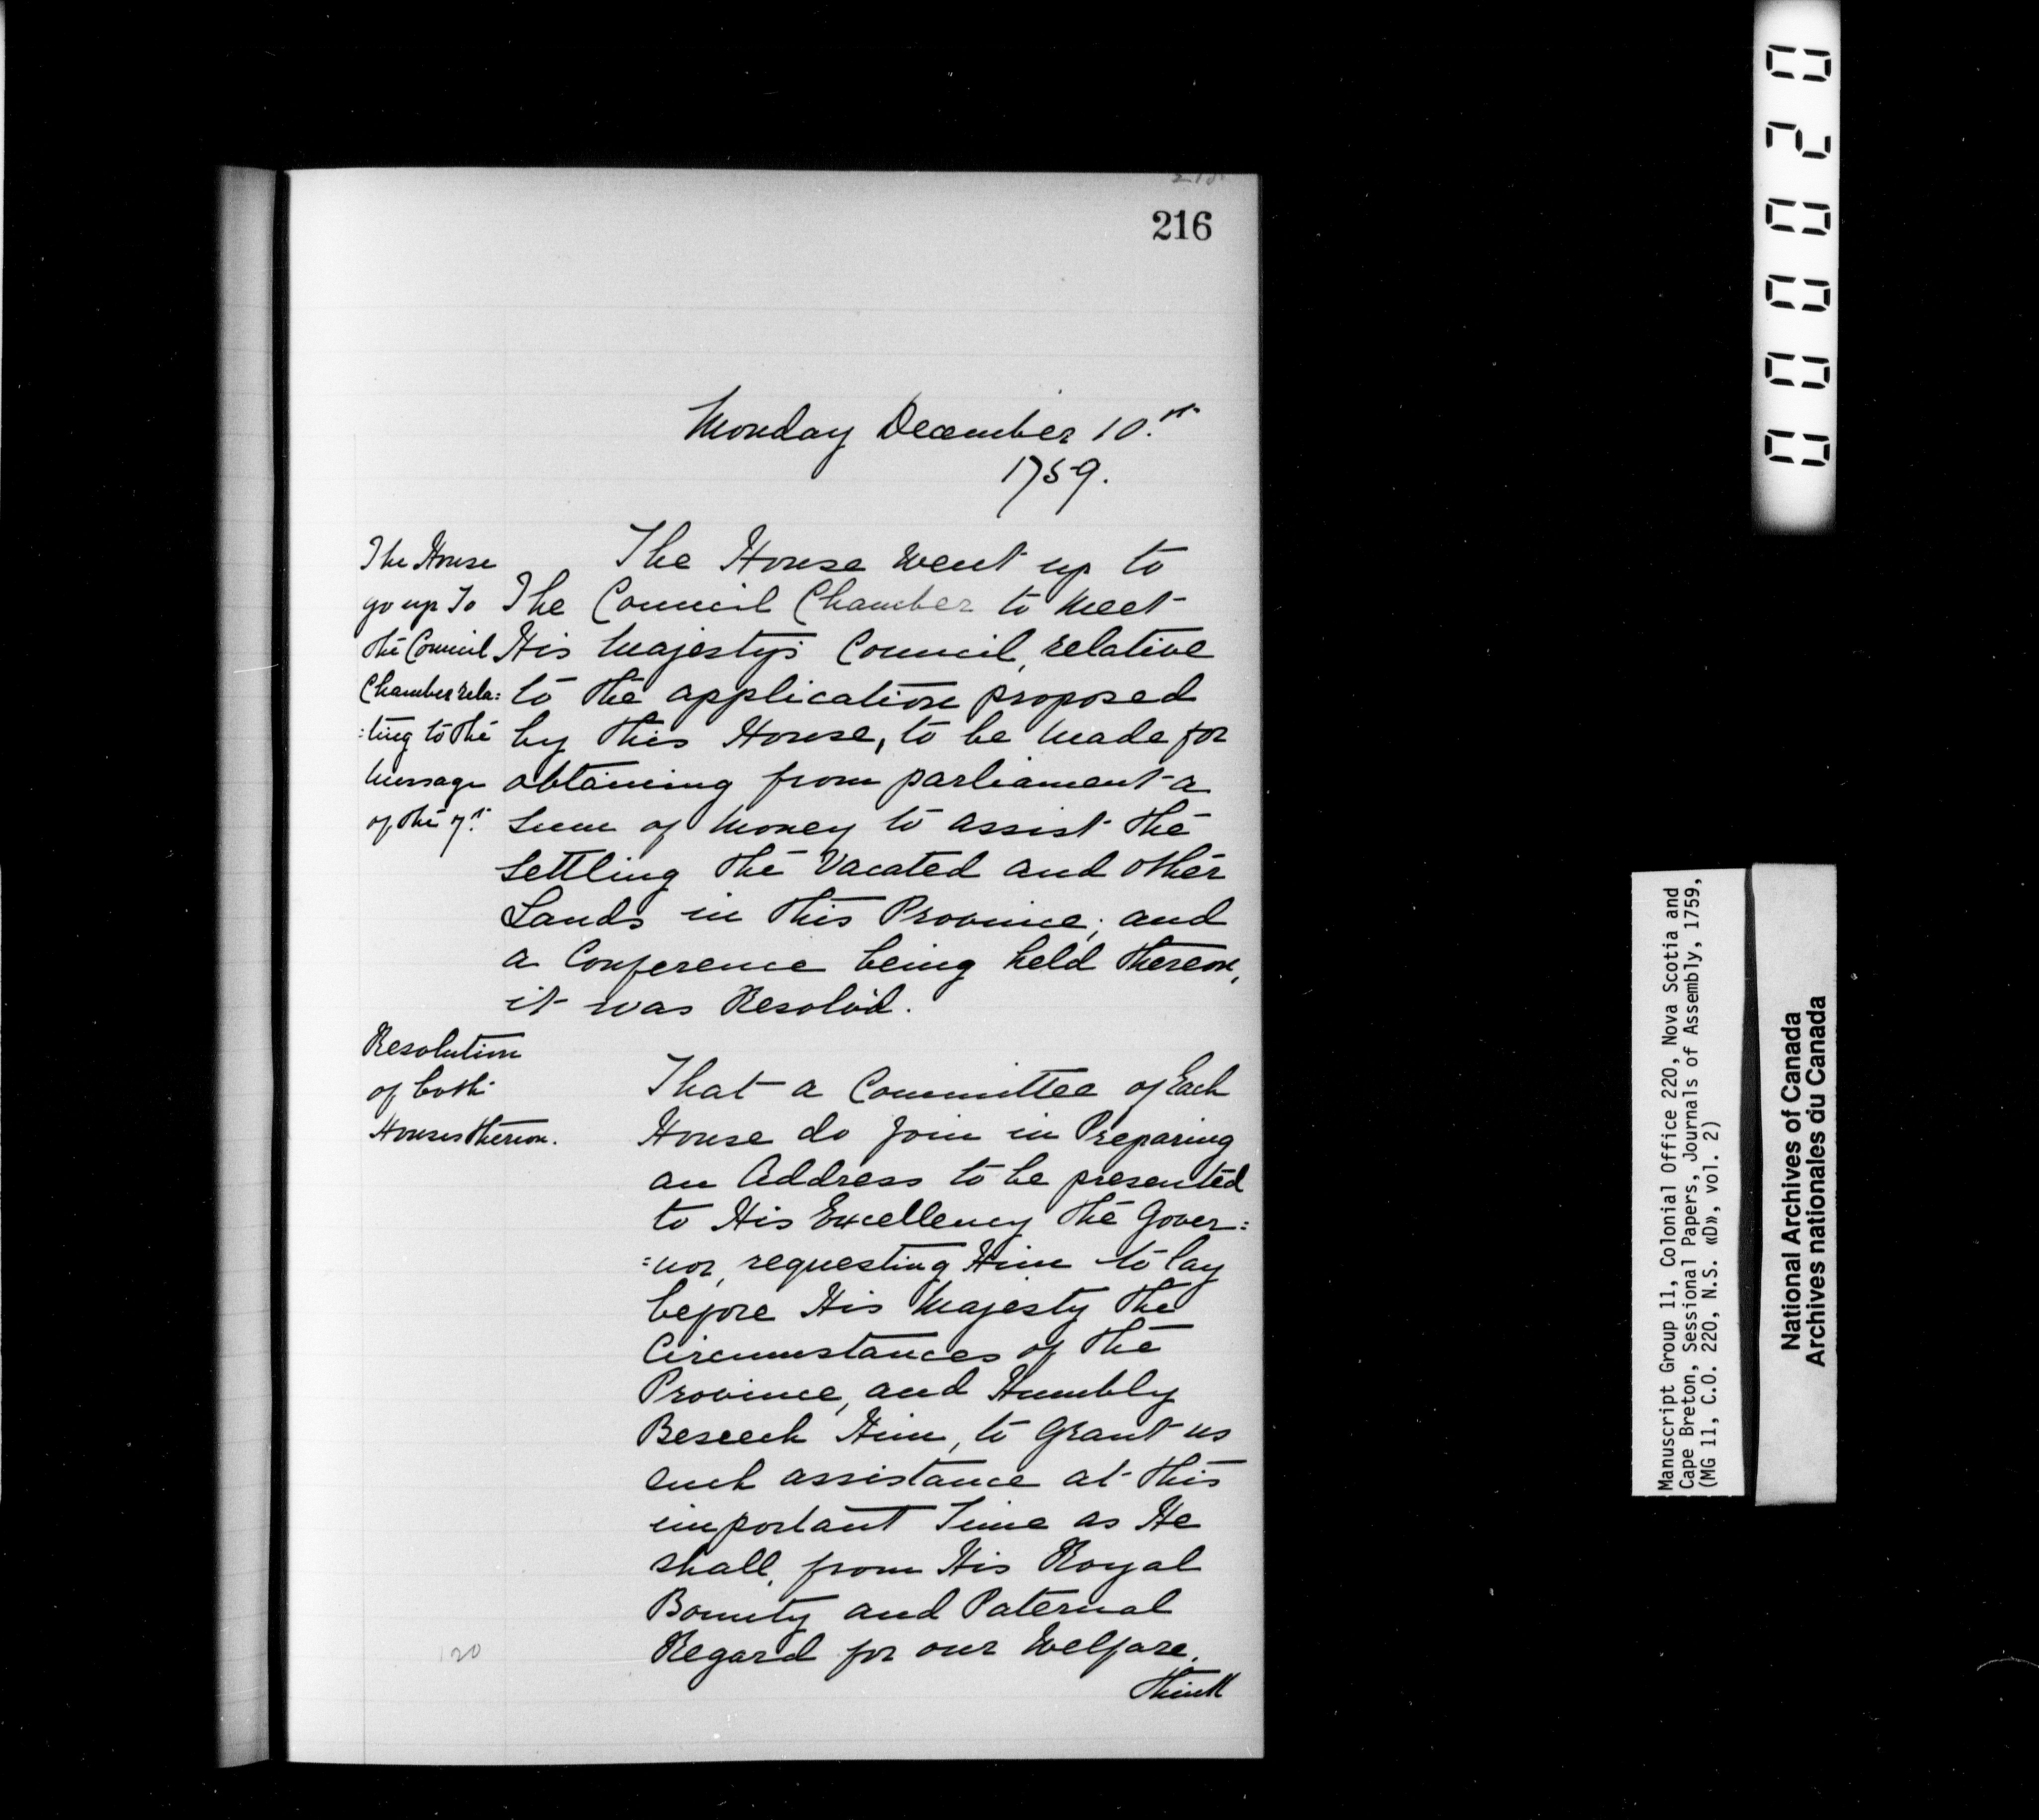 216
Monday December 10.th
1759.
The House
go up To
the Council
Chamber rela:
:ting to the
Message
of the 7.th
The House Went up to
The Council Chamber to Meet
His Majesty's Council, relative
to the application proposed
by this House, to be Made for
obtaining from parliament a
Sum of Money to assist the
Settling the Vacated and other
Lands in this Province; and
a Conference being held thereon,
it was Resolv'd.
Resolution
of both
Houses thereon.
That a Committee of Each
House do Join in Preparing
an Address to be presented
to His Excellency the Gover:
:nor, requesting Him to lay
before His Majesty the
Circumstances of the
Province, and Humbly
Beseech Him, to Grant us
such assistance at this
important Time as He
shall, from His Royal
Bounty and Paternal
Regard for our Welfare,
Think
120
000020
Manuscript Group 11, Colonial Office 220, Nova Scotia and
Cape Breton, Sessional Papers, Journals of Assembly, 1759,
(MG 11, C.O. 220, N.S. «D», vol. 2)
National Archives of Canada
Archives nationales du Canada